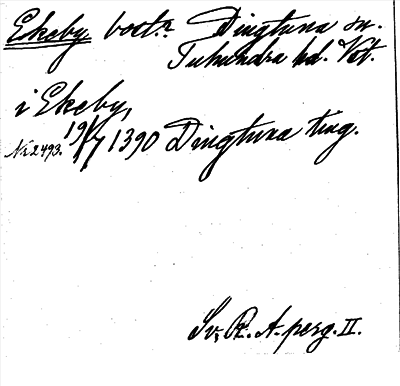 Ekeby bost.n Dingtuna sn.
Tuhundra hd. Vst.
i Ekeby,
Nr 2493. 19/7 1390 Dingtuna ting.
Sv. R. A. perg. II.